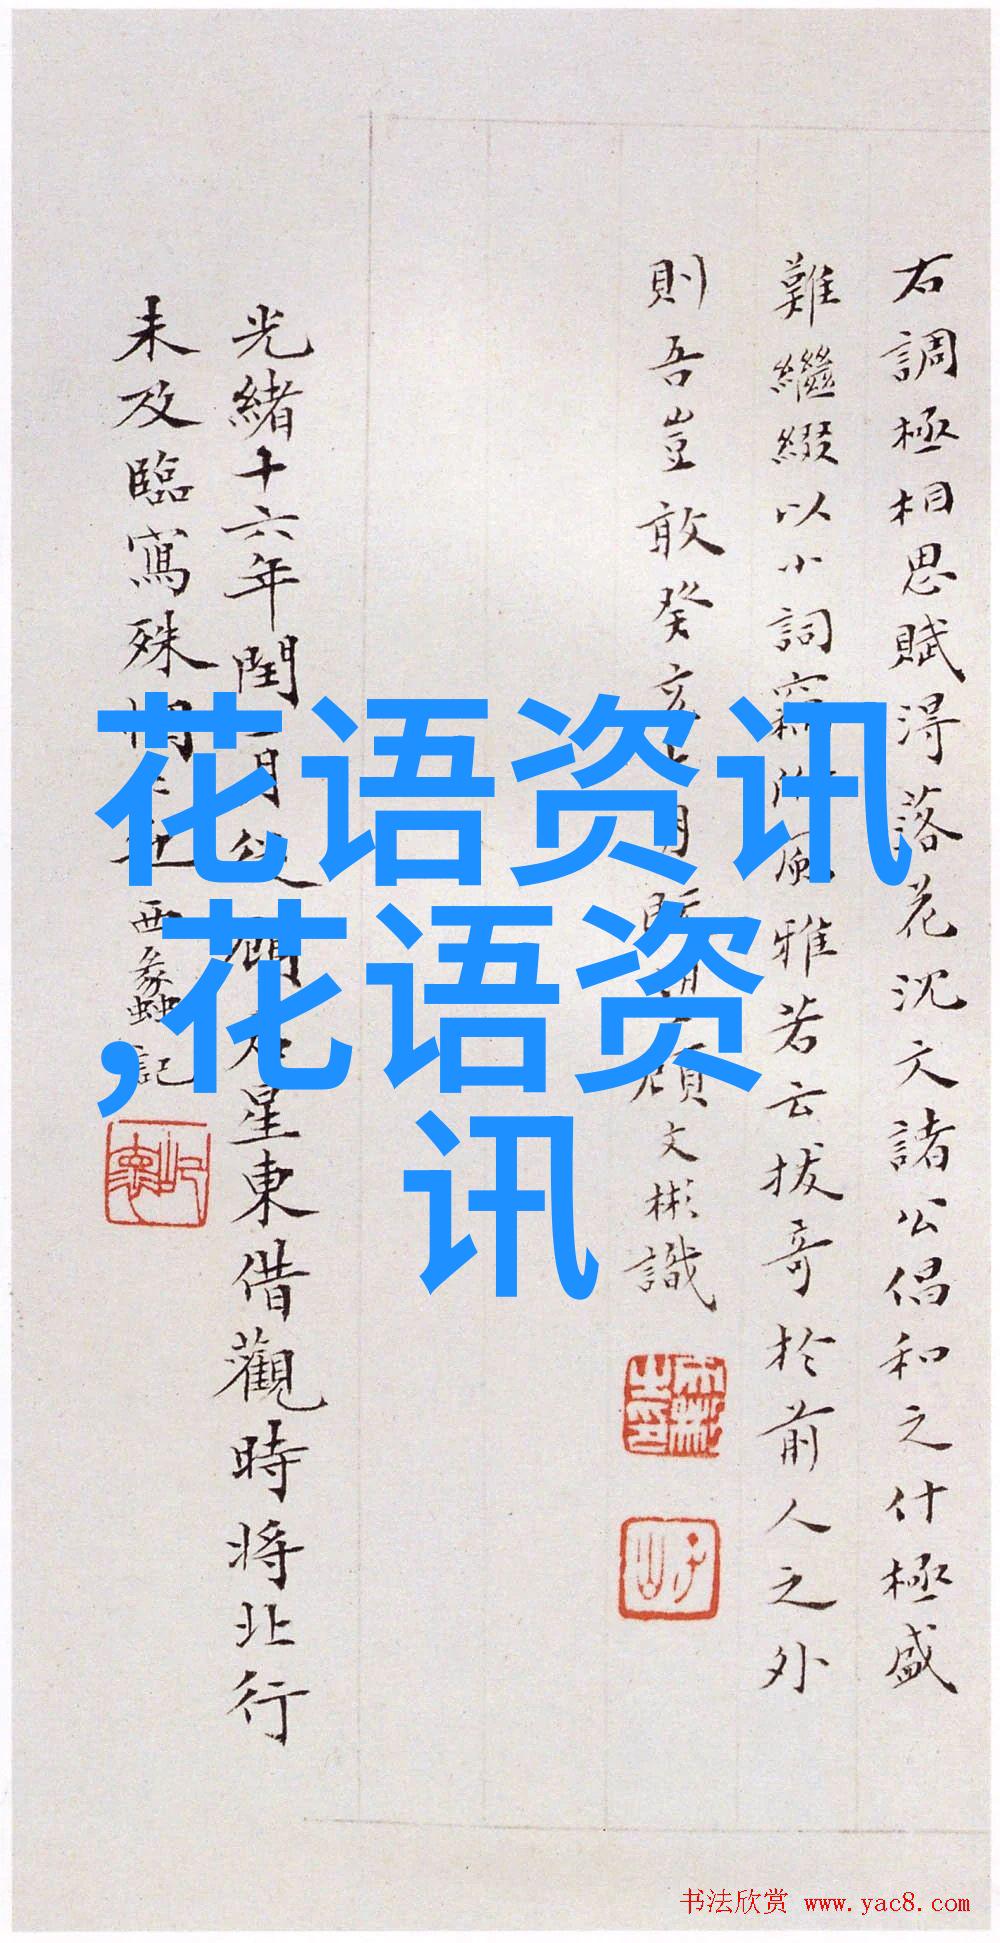 右調極相思賦得落花沈文諸公倡和之什極盛
難繼綴以小詞竊附風雅若云拔奇於前人之外
則吾豈敢癸亥 月 顧文彬識
光緒十六年閏二月從 星東借觀時將北行
未及臨寫殊 西蠡記
花语资讯
,花语资
讯
书法欣赏 www.yac8.com